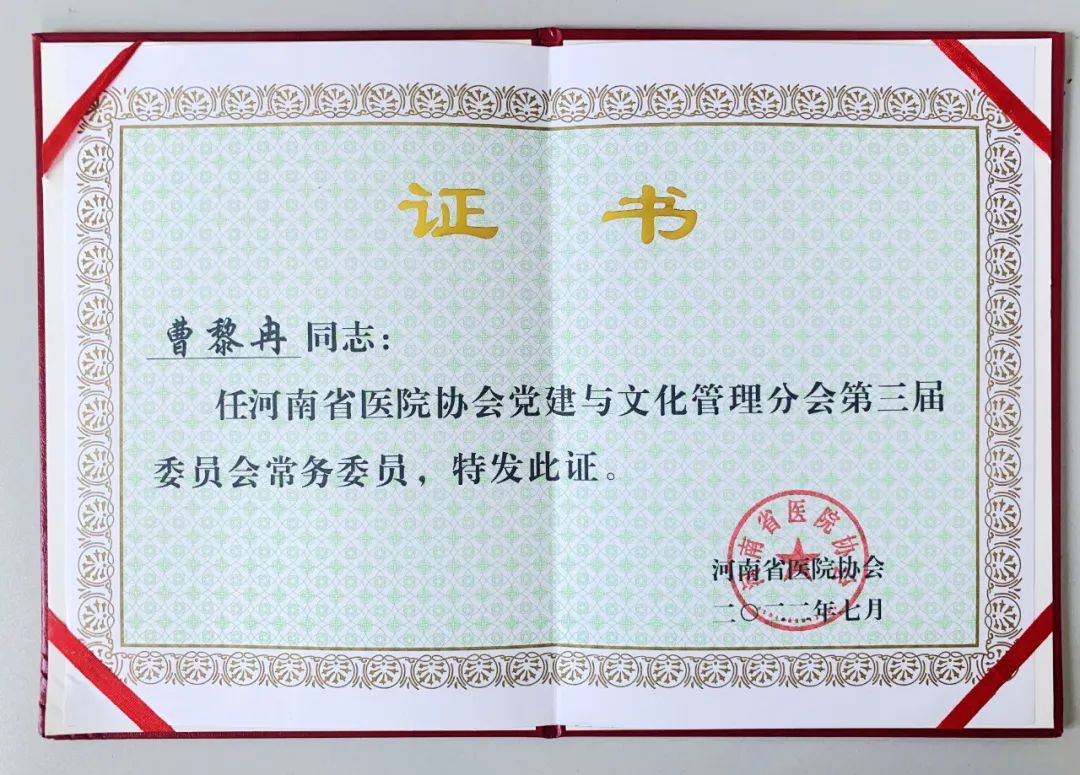 证 书
曹黎冉 同志：
任河南省医院协会党建与文化管理分会第三届
委员会常务委员，特发此证。
河南省医院协会
河南省医院协会
二〇二二年七月